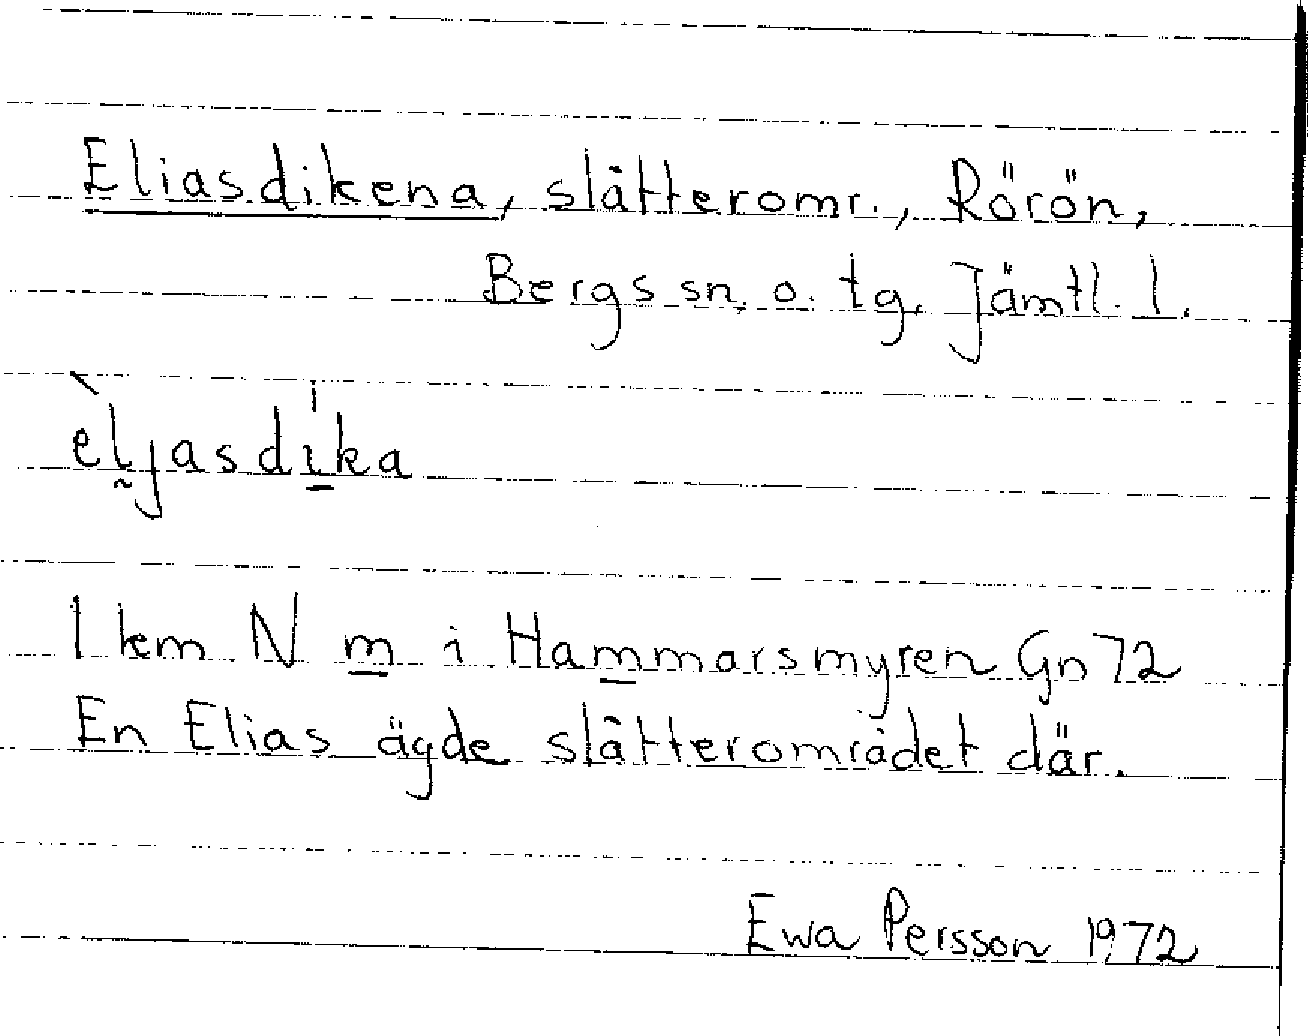 Eliasdikena, slåtteromr., Rörön,
Bergs sn. o. tg. Jämtl. l.
èl̰jasdi̱ka
1 km N m i Hammarsmyren Gn 72
En Elias ägde slåtterområdet där.
Ewa Persson 1972